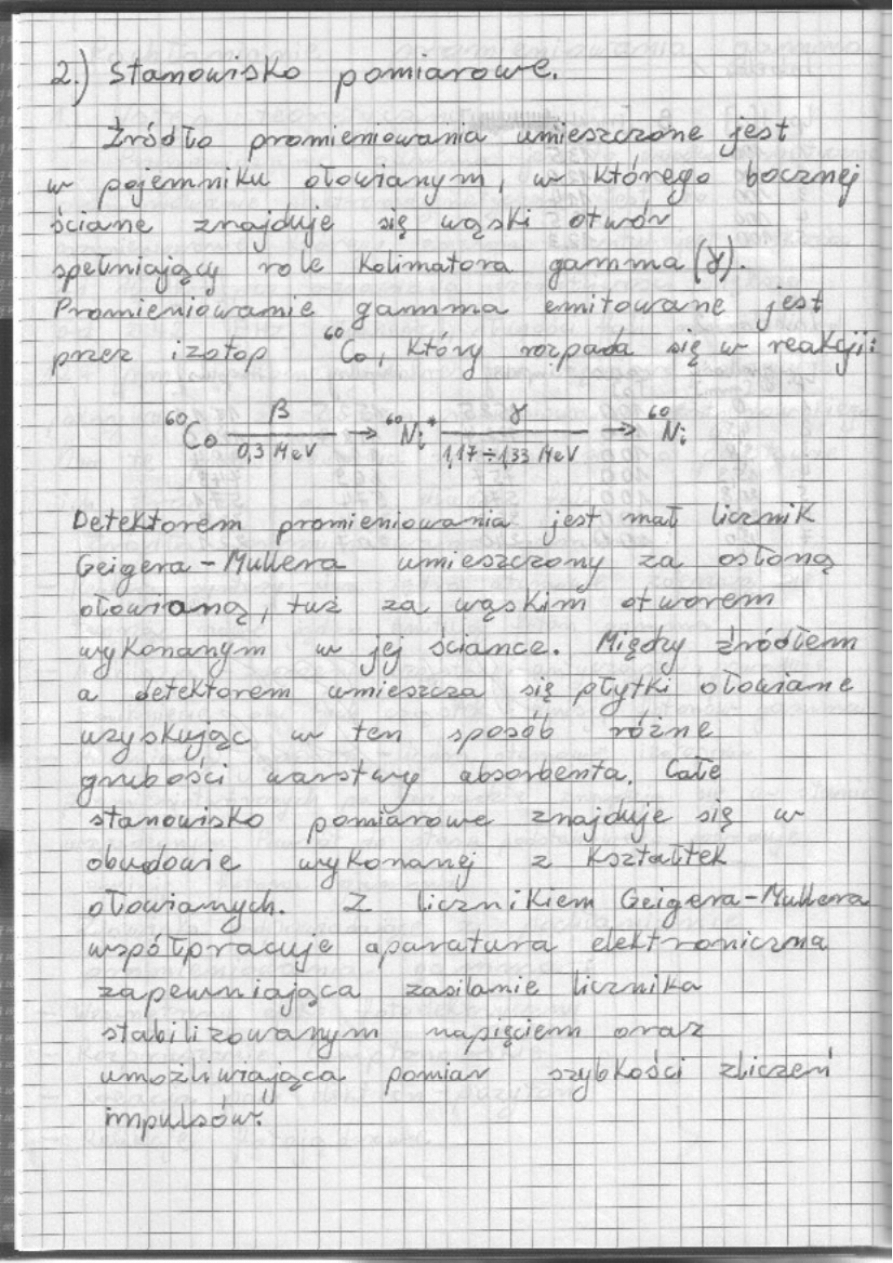 2.) Stanowisko pomiarowe.
Źródło promieniowania umieszczone jest
w pojemniku ołowianym, w którego bocznej
ściane znajduje się wąski otwór
spełniający role kolimatora gamma (γ).
Promieniowanie gamma emitowane jest
przez izotop ⁶⁰Co, który rozpada się w reakcji:
⁶⁰Co —β / 0,3 MeV→ ⁶⁰Ni* —γ / 1,17÷1,33 MeV→ ⁶⁰Ni
Detektorem promieniowania jest mał licznik
Geigera-Mullera umieszczony za osłoną
ołowianą, tuż za wąskim otworem
wykonanym w jej ściance. Między źródłem
a detektorem umieszcza się płytki ołowiane
uzyskując w ten sposób różne
grubości warstwy absorbenta. Całe
stanowisko pomiarowe znajduje się w
obudowie wykonanej z kształtek
ołowianych. Z licznikiem Geigera-Mullera
współpracuje aparatura elektroniczna
zapewniająca zasilanie licznika
stabilizowanym napięciem oraz
umożliwiająca pomiar szybkości zliczeń
impulsów.